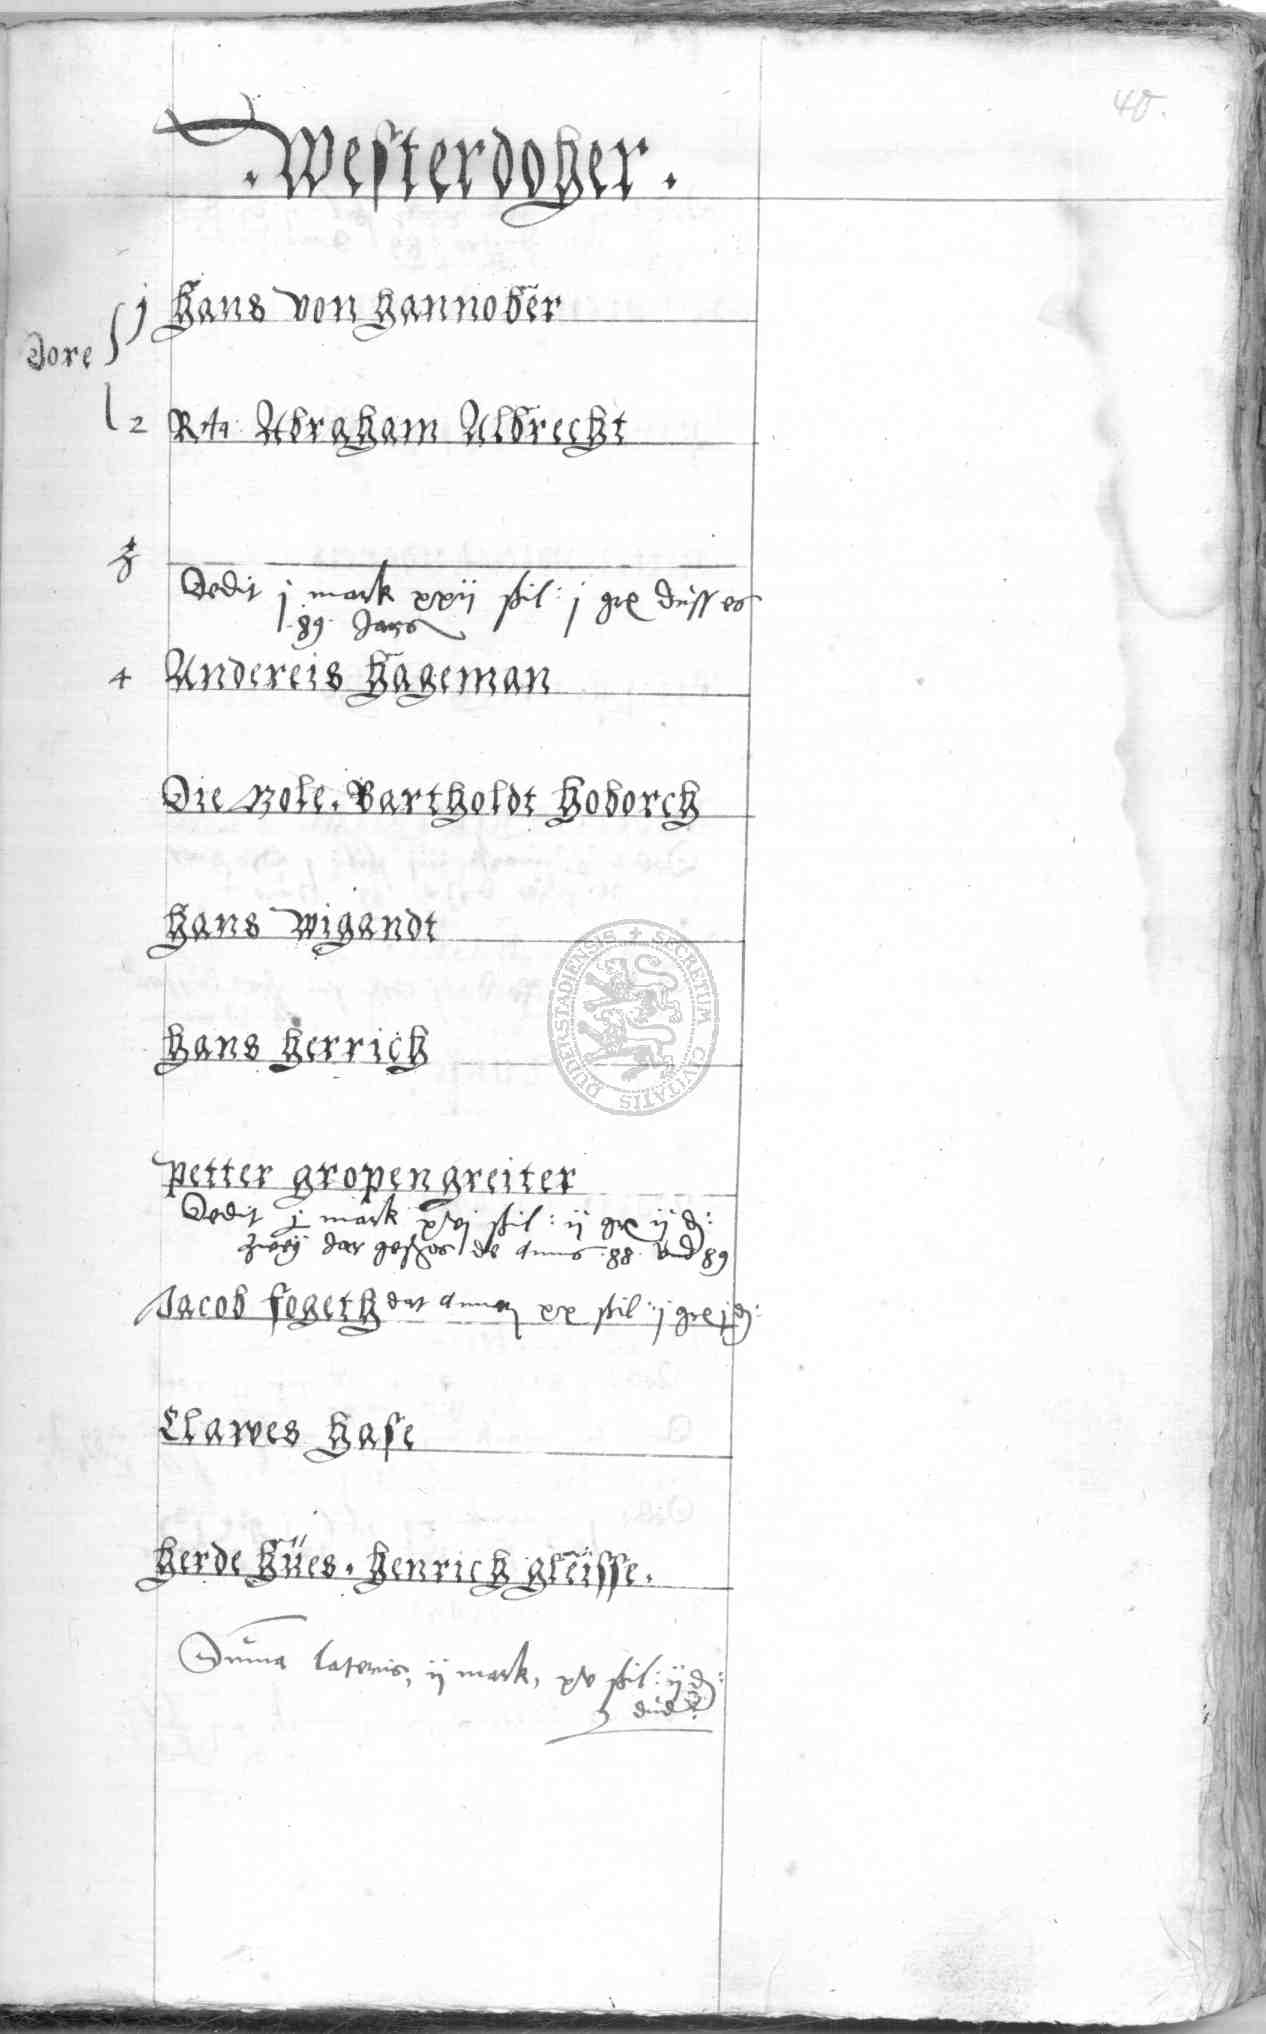 40.
. Westerdoher .
Dore
j Hans von Hannober
2 Rta: Abraham Albrecht
3
Dedit j mark xxij ßil: j gre dusses
89 Jars
4 Andereis Hageman
Die Mole . Bartholdt Hoborch
Hans Wigandt
Hans Herrich
Petter gropengreiter
Dedit j mark xvj ßil: ij gre ij d:
zweij Jar geschos de anno 88 und 89
Jacob fogeth dat xx ßil: j gre j d:
Clawes Hase
Herde Hües . Henrich gleisse .
Suma lateris, ij mark, xv ßil: ij d:
dud
SECRETUM CIVITATIS DUDERSTADIENSIS